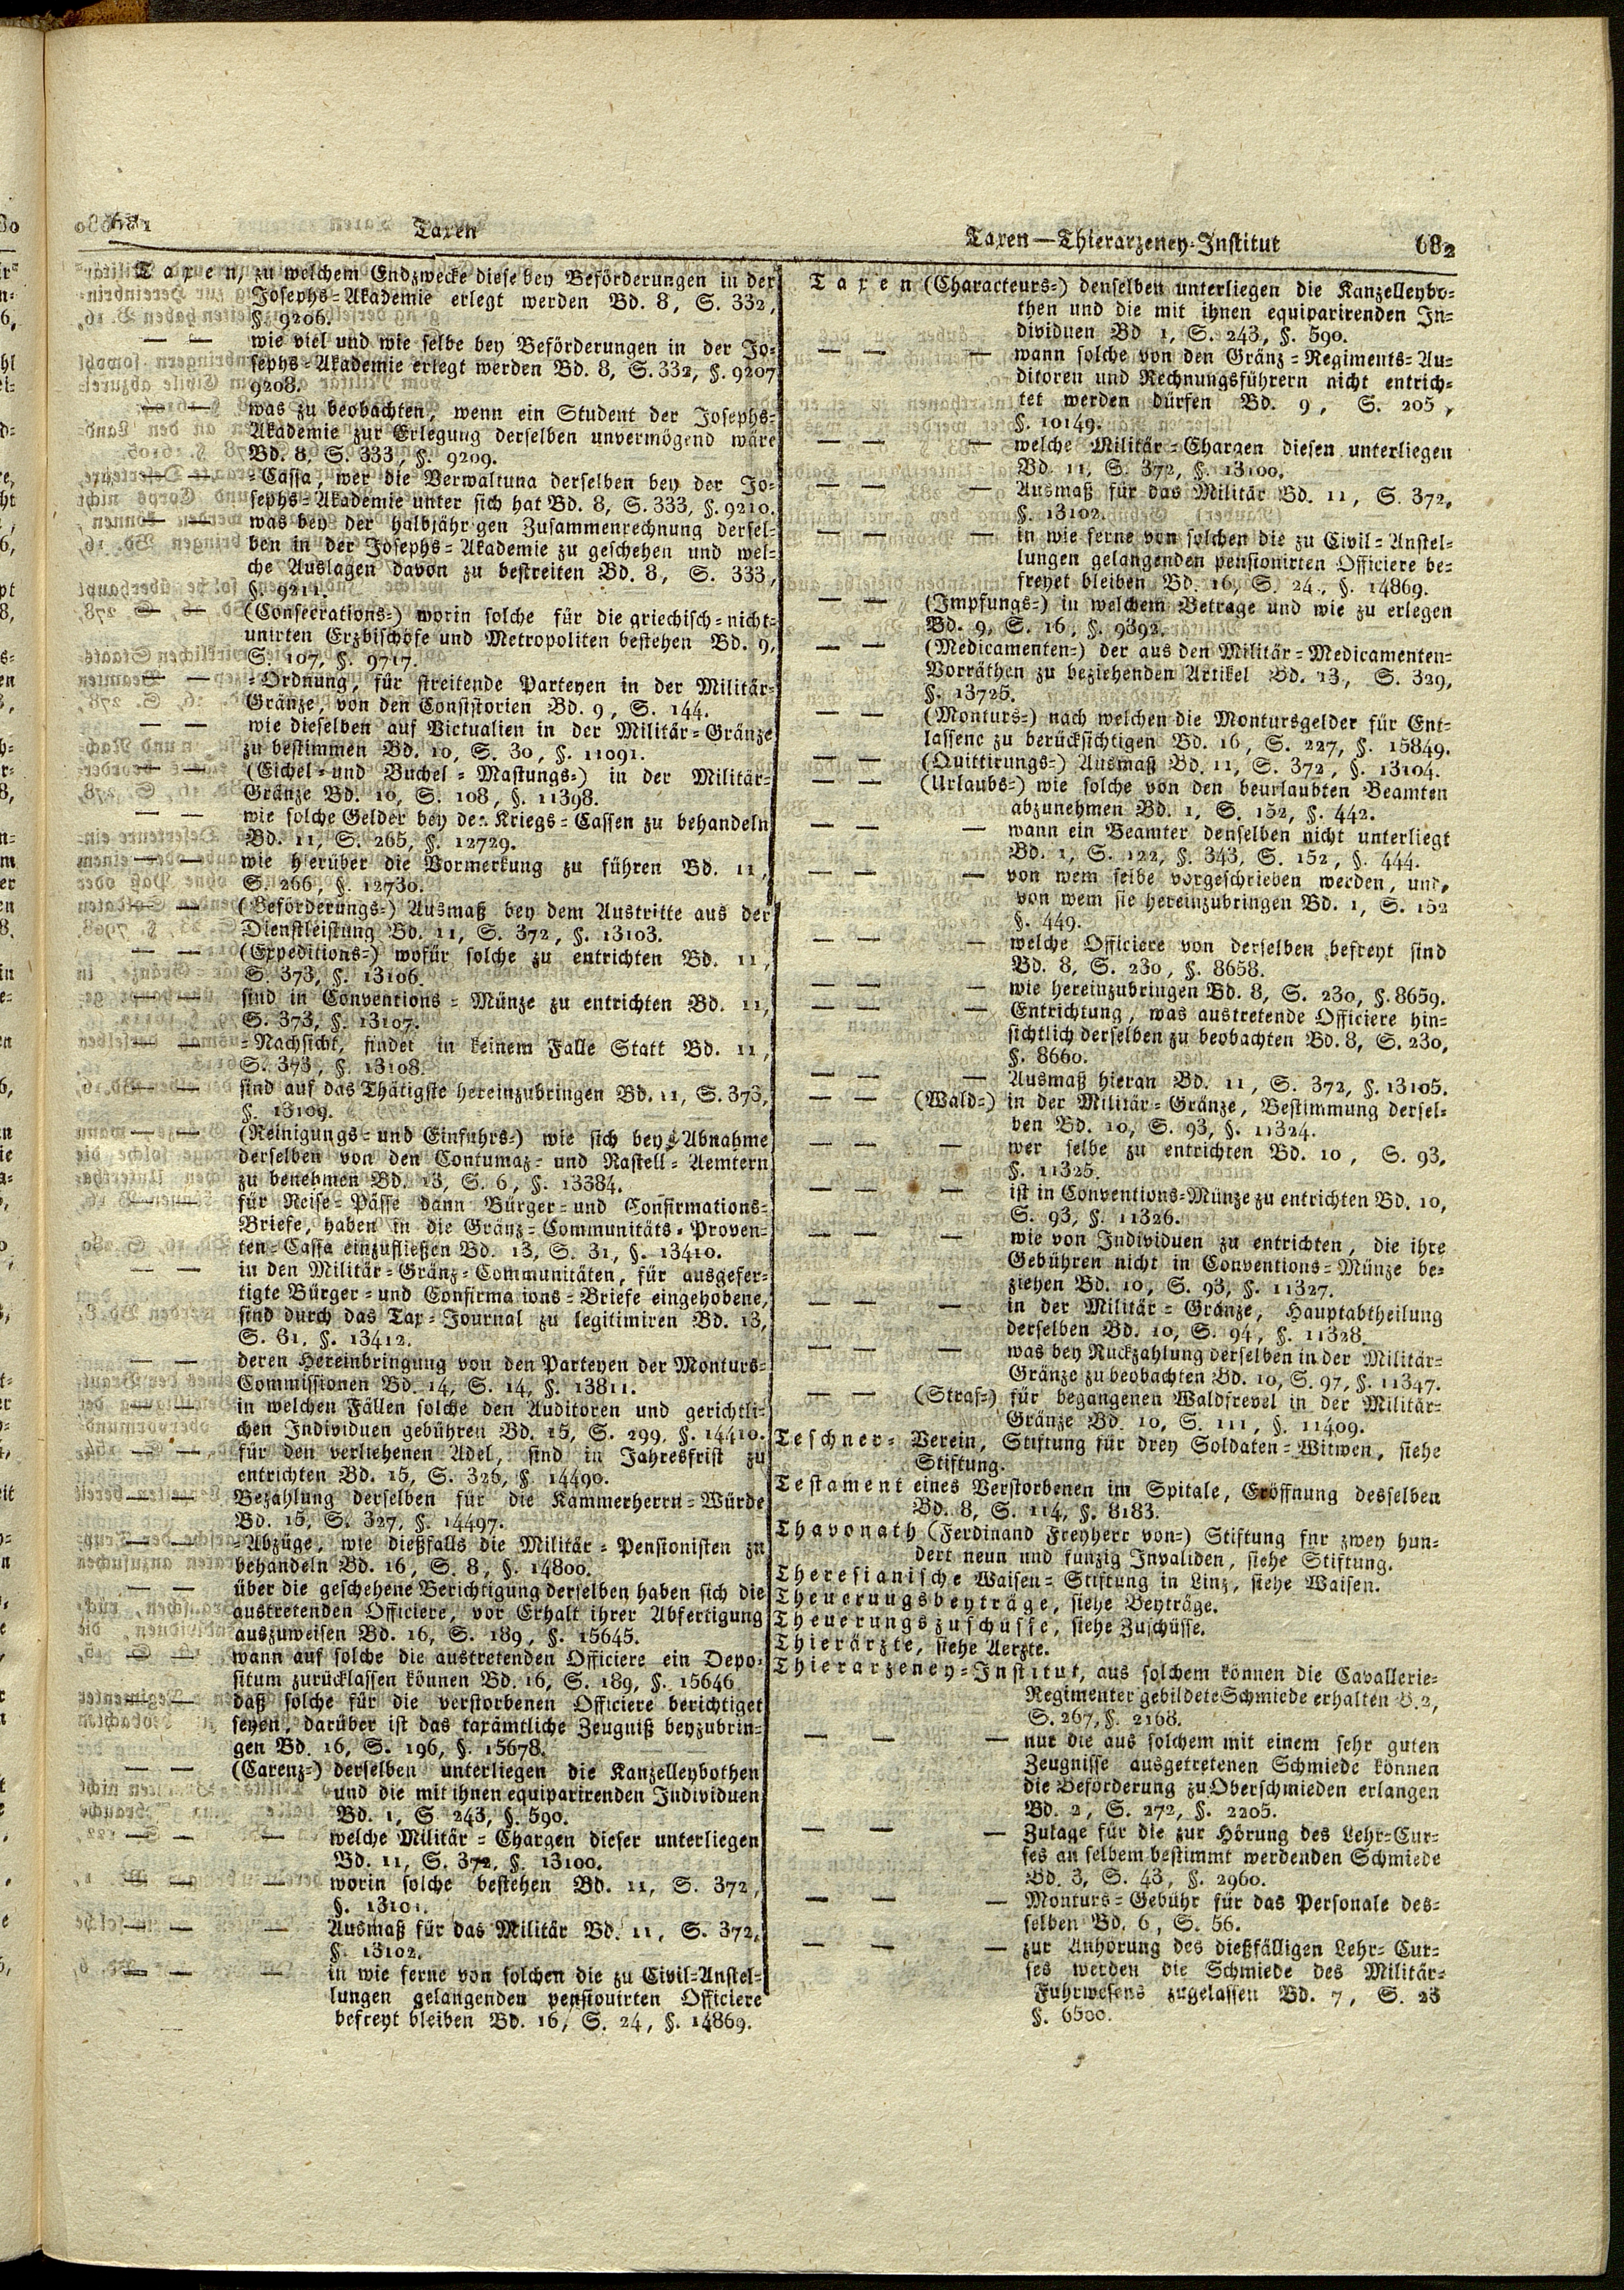 681
Taxen
Taxen, zu welchem Endzwecke diese bey Beförderungen in der
Josephs=Akademie erlegt werden Bd. 8, S. 332,
§. 9206.
— — wie viel und wie selbe bey Beförderungen in der Jo=
sephs=Akademie erlegt werden Bd. 8, S. 332, §. 9207
9208.
— — was zu beobachten, wenn ein Student der Josephs=
Akademie zur Erlegung derselben unvermögend wäre
Bd. 8, S. 333, §. 9209.
— — =Cassa, wer die Verwaltung derselben bey der Jo=
sephs=Akademie unter sich hat Bd. 8, S. 333, §. 9210.
— — was bey der halbjähr gen Zusammenrechnung dersel=
ben in der Josephs=Akademie zu geschehen und wel=
che Auslagen davon zu bestreiten Bd. 8, S. 333,
§. 9211.
— — (Consecrations=) worin solche für die griechisch=nicht=
unirten Erzbischöfe und Metropoliten bestehen Bd. 9,
S. 107, §. 9717.
— — =Ordnung, für streitende Parteyen in der Militär=
Gränze, von den Consistorien Bd. 9, S. 144.
— — wie dieselben auf Victualien in der Militär=Gränze
zu bestimmen Bd. 10, S. 30, §. 11091.
— — (Eichel= und Buchel=Mastungs=) in der Militär=
Gränze Bd. 10, S. 108, §. 11398.
— — wie solche Gelder bey den Kriegs=Cassen zu behandeln
Bd. 11, S. 265, §. 12729.
— — wie hierüber die Vormerkung zu führen Bd. 11,
S. 266, §. 12730.
— — (Beförderungs=) Ausmaß bey dem Austritte aus der
Dienstleistung Bd. 11, S. 372, §. 13103.
— — (Expeditions=) wofür solche zu entrichten Bd. 11,
S. 373, §. 13106
— — sind in Conventions=Münze zu entrichten Bd. 11,
S. 373, §. 13107.
— — =Nachsicht, findet in keinem Falle Statt Bd. 11,
S. 373, §. 13108.
— — sind auf das Thätigste hereinzubringen Bd. 11, S. 373,
§. 13109.
— — (Reinigungs= und Einfuhrs=) wie sich bey Abnahme
derselben von den Contumaz= und Rastell=Aemtern
zu benehmen Bd. 13, S. 6, §. 13384.
— — für Reise=Pässe dann Bürger= und Confirmations=
Briefe, haben in die Gränz=Communitäts=Proven=
ten=Cassa einzufließen Bd. 13, S. 31, §. 13410.
— — in den Militär=Gränz=Communitäten, für ausgefer=
tigte Bürger= und Confirma ions=Briefe eingehobene,
sind durch das Tax=Journal zu legitimiren Bd. 13,
S. 31, §. 13412.
— — deren Hereinbringung von den Parteyen der Monturs=
Commissionen Bd. 14, S. 14, §. 13811.
— — in welchen Fällen solche den Auditoren und gerichtli=
chen Individuen gebühren Bd. 15, S. 299, §. 14410.
— — für den verliehenen Adel, sind in Jahresfrist zu
entrichten Bd. 15, S. 326, §. 14490.
— — Bezahlung derselben für die Kammerherrn=Würde
Bd. 15, S. 327, §. 14497.
— — =Abzüge, wie dießfalls die Militär=Pensionisten zu
behandeln Bd. 16, S. 8, §. 14800.
— — über die geschehene Berichtigung derselben haben sich die
austretenden Officiere, vor Erhalt ihrer Abfertigung
auszuweisen Bd. 16, S. 189, §. 15645.
— — wann auf solche die austretenden Officiere ein Depo=
situm zurücklassen können Bd. 16, S. 189, §. 15646
— — daß solche für die verstorbenen Officiere berichtiget
seyen, darüber ist das taxämtliche Zeugniß beyzubrin=
gen Bd. 16, S. 196, §. 15678.
— — (Carenz=) derselben unterliegen die Kanzelleybothen
und die mit ihnen equiparirenden Individuen
Bd. 1, S. 243, §. 590.
— — — welche Militär=Chargen dieser unterliegen
Bd. 11, S. 372, §. 13100.
— — — worin solche bestehen Bd. 11, S. 372,
§. 13101.
— — — Ausmaß für das Militär Bd. 11, S. 372,
§. 13102.
— — — in wie ferne von solchen die zu Civil=Anstel=
lungen gelangenden pensionirten Officiere
befreyt bleiben Bd. 16, S. 24, §. 14869.
Taxen—Thierarzeney=Institut
682
Taxen (Characteurs=) denselben unterliegen die Kanzelleybo=
then und die mit ihnen equiparirenden In=
dividuen Bd 1, S. 243, §. 590.
— — — wann solche von den Gränz=Regiments=Au=
ditoren und Rechnungsführern nicht entrich=
tet werden dürfen Bd. 9, S. 205,
§. 10149.
— — — welche Militär=Chargen diesen unterliegen
Bd. 11, S. 372, §. 13100.
— — — Ausmaß für das Militär Bd. 11, S. 372,
§. 13102.
— — — in wie ferne von solchen die zu Civil=Anstel=
lungen gelangenden pensionirten Officiere be=
freyet bleiben Bd. 16, S. 24., §. 14869.
— — (Impfungs=) in welchem Betrage und wie zu erlegen
Bd. 9, S. 16, §. 9392.
— — (Medicamenten=) der aus den Militär=Medicamenten=
Vorräthen zu beziehenden Artikel Bd. 13, S. 329,
§. 13725.
— — (Monturs=) nach welchen die Montursgelder für Ent=
lassene zu berücksichtigen Bd. 16, S. 227, §. 15849.
— — (Quittirungs=) Ausmaß Bd. 11, S. 372, §. 13104.
— — (Urlaubs=) wie solche von den beurlaubten Beamten
abzunehmen Bd. 1, S. 152, §. 442.
— — — wann ein Beamter denselben nicht unterliegt
Bd. 1, S. 122, §. 343, S. 152, §. 444.
— — — von wem selbe vorgeschrieben werden, und,
von wem sie hereinzubringen Bd. 1, S. 152
§. 449.
— — — welche Officiere von derselben befreyt sind
Bd. 8, S. 230, §. 8658.
— — — wie hereinzubringen Bd. 8, S. 230, §. 8659.
— — — Entrichtung, was austretende Officiere hin=
sichtlich derselben zu beobachten Bd. 8, S. 230,
§. 8660.
— — — Ausmaß hieran Bd. 11, S. 372, §. 13105.
— — (Wald=) in der Militär=Gränze, Bestimmung dersel=
ben Bd. 10, S. 93, §. 11324.
— — — wer selbe zu entrichten Bd. 10, S. 93,
§. 11325.
— — — ist in Conventions=Münze zu entrichten Bd. 10,
S. 93, §. 11326.
— — — wie von Individuen zu entrichten, die ihre
Gebühren nicht in Conventions=Münze be=
ziehen Bd. 10, S. 93, §. 11327.
— — — in der Militär=Gränze, Hauptabtheilung
derselben Bd. 10, S. 94, §. 11328.
— — — was bey Rückzahlung derselben in der Militär=
Gränze zu beobachten Bd. 10, S. 97, §. 11347.
— — (Straf=) für begangenen Waldfrevel in der Militär=
Gränze Bd. 10, S. 111, §. 11409.
Teschner=Verein, Stiftung für drey Soldaten=Witwen, siehe
Stiftung.
Testament eines Verstorbenen im Spitale, Eröffnung desselben
Bd. 8, S. 114, §. 8183.
Thavonath (Ferdinand Freyherr von=) Stiftung fnr zwey hun=
dert neun und funzig Invaliden, siehe Stiftung.
Theresianische Waisen=Stiftung in Linz, siehe Waisen.
Theuerungsbeyträge, siehe Beyträge.
Theuerungszuschüsse, siehe Zuschüsse.
Thierärzte, siehe Aerzte.
Thierarzeney=Institut, aus solchem können die Cavallerie=
Regimenter gebildete Schmiede erhalten B. 2,
S. 267, §. 2168.
— — — nur die aus solchem mit einem sehr guten
Zeugnisse ausgetretenen Schmiede können
die Beförderung zu Oberschmieden erlangen
Bd. 2, S. 272, §. 2205.
— — — Zulage für die zur Hörung des Lehr=Cur=
ses an selbem bestimmt werdenden Schmiede
Bd. 3, S. 43, §. 2960.
— — — Monturs=Gebühr für das Personale des=
selben Bd. 6, S. 56.
— — — zur Anhörung des dießfälligen Lehr=Cur=
ses werden die Schmiede des Militär=
Fuhrwesens zugelassen Bd. 7, S. 23
§. 6500.